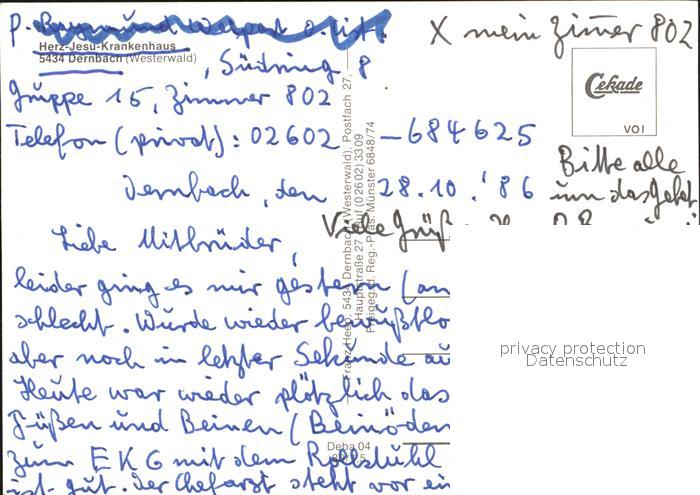 X mein Zimmer 802
Herz-Jesu-Krankenhaus
5434 Dernbach (Westerwald)
, Südring 8
Gruppe 15, Zimmer 802
Telefon (privat): 02602 – 684625
Cekade
VOI
Bitte alle
um das Gebet
Dernbach, den 28.10.'86
Viele Grüß
Liebe Mitbrüder,
leider ging es mir gestern (am
schlecht. Wurde wieder bewußtlo
aber noch in letzter Sekunde au
Heute war wieder plötzlich das
Füßen und Beinen (Beinöden
zum EKG mit dem Rollstuhl
ist gut. Der Chefarzt steht vor ein
5434 Dernbach (Westerwald), Postfach 27
Hauptstraße 27, Ruf (02602) 3309
Freigeg. d. Reg.-Präs. Münster 6848/74
Deba 04
privacy protection
Datenschutz